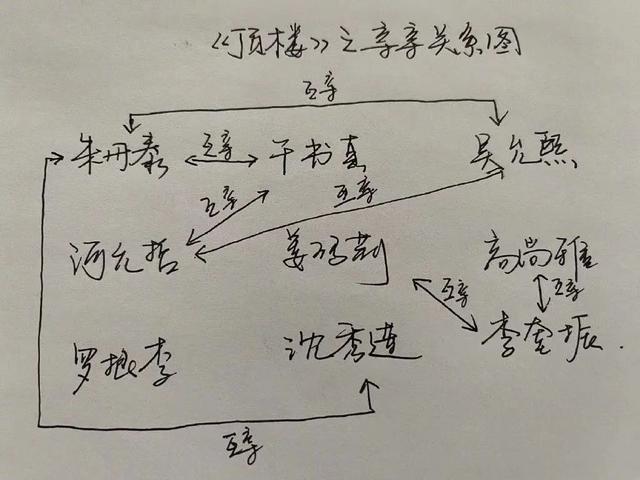 《顶楼》之享享关系图
互享
朱丹泰 互享 千书真 吴允熙
互享 互享
河允哲 姜玛莉 高尚雅
互享 互享
罗根李 沈秀莲 李奎振.
互享